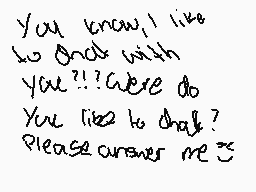 You know, I like
to chat with
you?!? Were do
You like to chat?
Please answer me